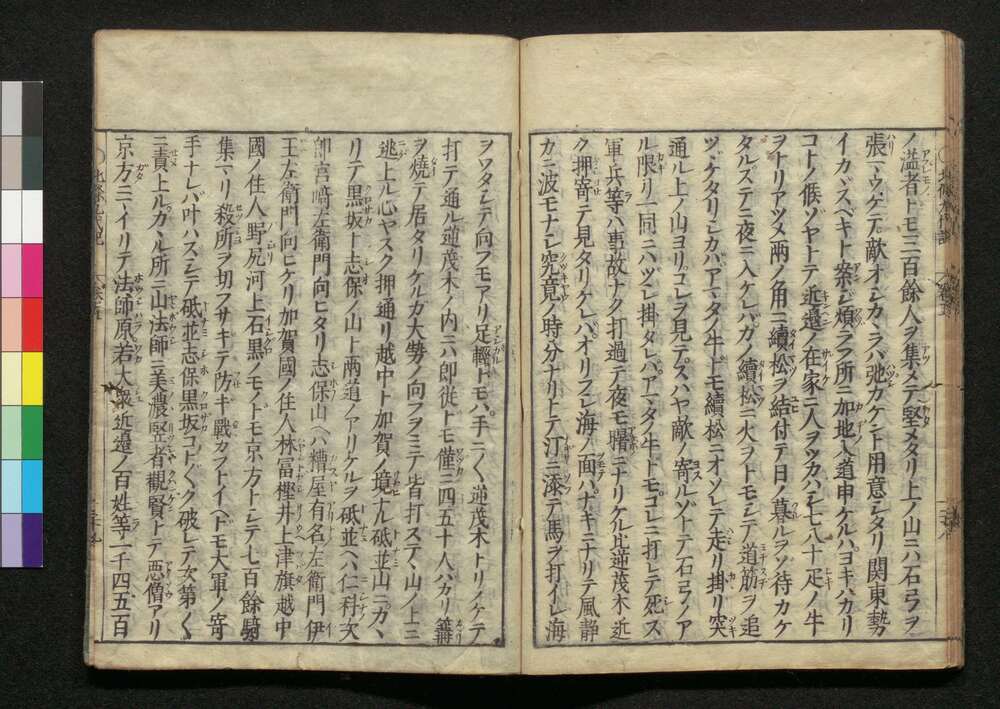 ノ濫者トモ三百餘人ヲ集メテ堅メタリ上ノ山ニハ石弓ヲ
張マウケテ敵オシカヽラハ弛カケント用意シタリ関東勢
イカヽスベキト案シ煩ラフ所ニ加地入道申ケルハヨキハカリ
コトノ候ソヤトテ近邊ノ在家ニ人ヲツカハシ七八十疋ノ牛
ヲトリアツメ両ノ角ニ續松ヲ結付テ日ノ暮ルヲソ待カケ
タルステニ夜ニ入ケレバカノ續松ニ火ヲトモシテ道筋ヲ追
ツヽケタリシカバアマタノ牛トモ續松ニオソレテ走リ掛リ突
通ル上ノ山ヨリコレヲ見テスハヤ敵ノ寄ルゾトテ石弓ノア
ル限リ一同ニハツシ掛タレバアマタノ牛トモコレニ打レテ死ス
軍兵等ハ事故ナク打過テ夜モ曙ニナリケル比逆茂木近
ク押寄テ見タリケレバオリフシ海ノ面ハナキニナリテ風静
カニ波モナシ究竟ノ時分ナリトテ汀ニ添テ馬ヲ打イレ海
ヲワタシテ向フモアリ足輕トモハ手ニ〱逆茂木トリノケテ
打テ通ル逆茂木ノ内ニハ郎従トモ僅ニ四五十人ハカリ篝
ヲ焼テ居タリケルガ大勢ノ向フヲミテ皆打ステヽ山ノ上ニ
逃上ル心ヤスク押通リ越中ト加賀ノ境ナル砥並山ニカヽ
リテ黒坂ト志保ノ山ト両道ノアリケルヲ砥並ヘハ仁科次
郎宮﨑左衛門向ヒタリ志保山ヘハ糟屋有名左衛門伊
王左衛門向ヒケリ加賀國ノ住人林冨樫井上津旗越中
國ノ住人野尻河上石黒ノモノトモ京方トシテ七百餘騎
集マリ殺所ヲ切フサギテ防キ戰カフトイヘドモ大軍ノ寄
手ナレバ叶ハズシテ砥並志保黒坂コト〲ク破レテ次第〱
ニ責上ルカヽル所ニ山法師ニ美濃竪者觀賢トテ悪僧アリ
京方ニマイリテ法師原若大衆近邊ノ百姓等一千四五百